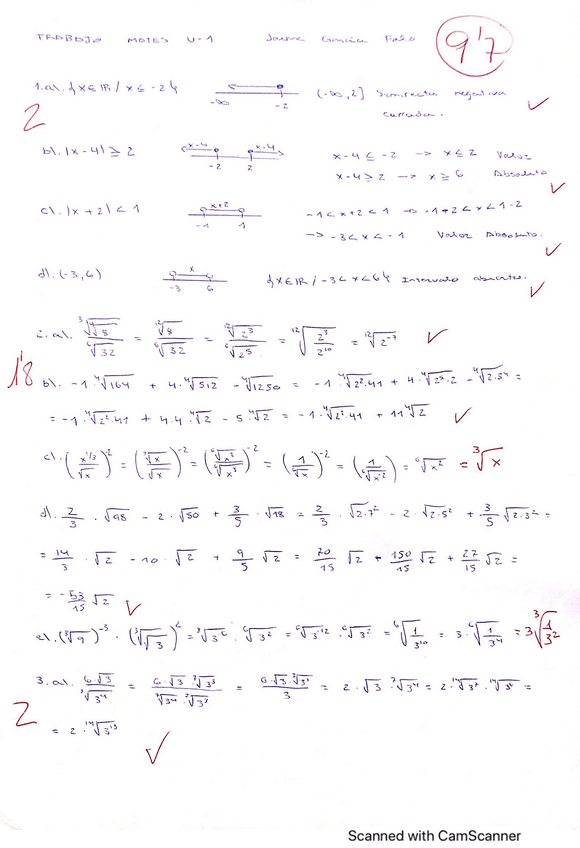 TRABAJO MATES U-1 Jaime García Polo 9'7
1.a). {x∈IR / x ≤ -2} -∞ -2 (-∞,2] Semirrecta negativa
cerrada.
2
b). |x-4| ≥ 2 x-4 x-4 -2 2 x-4 ≤ -2 -> x ≤ 2 Valor
x-4 ≥ 2 -> x ≥ 6 Absoluto
c). |x+2| < 1 x+2 -1 1 -1 < x+2 < 1 -> -1+2 < x < 1-2
-> -3 < x < -1 Valor Absoluto.
d). (-3,6) x -3 6 {x∈IR / -3 < x < 6} Intervalo abierto.
2.a). ∛(∜8) / ⁶√32 = ¹²√8 / ⁶√32 = ¹²√2³ / ⁶√2⁵ = ¹²√(2³/2¹⁰) = ¹²√2⁻⁷
1'8
b). -1·∜164 + 4·∜512 - ∜1250 = -1·∜2²·41 + 4·∜2⁹·2 - ∜2·5⁴ =
= -1·∜2²·41 + 4·4·∜2 - 5·∜2 = -1·∜2²·41 + 11∜2
c). (x^1/3 / √x)⁻² = (∛x / √x)⁻² = (⁶√x² / ⁶√x³)⁻² = (1 / ⁶√x)⁻² = (1 / ⁶√x⁻²) = ⁶√x² = ∛x
d). 2/3 · √98 - 2 · √50 + 3/5 · √18 = 2/3 · √2·7² - 2 · √2·5² + 3/5 √2·3² =
= 14/3 · √2 - 10 · √2 + 9/5 √2 = 70/15 √2 + 150/15 √2 + 27/15 √2 =
= -53/15 √2
e). (∛9)⁻⁵ · (∛√3)² = ∛3 · ⁶√3² = ⁶√3 · ⁶√3² = ⁶√(1/3¹⁰) = 3·⁶√(1/3⁴) = 3∛(1/3²)
3.a). 6·√3 / ⁷√3⁴ = 6·√3·⁷√3³ / ⁷√3⁴·⁷√3³ = 6·√3·⁷√3³ / 3 = 2·√3·⁷√3⁴ = 2·¹⁴√3⁷·¹⁴√3⁶ =
2
= 2·¹⁴√3¹³
Scanned with CamScanner